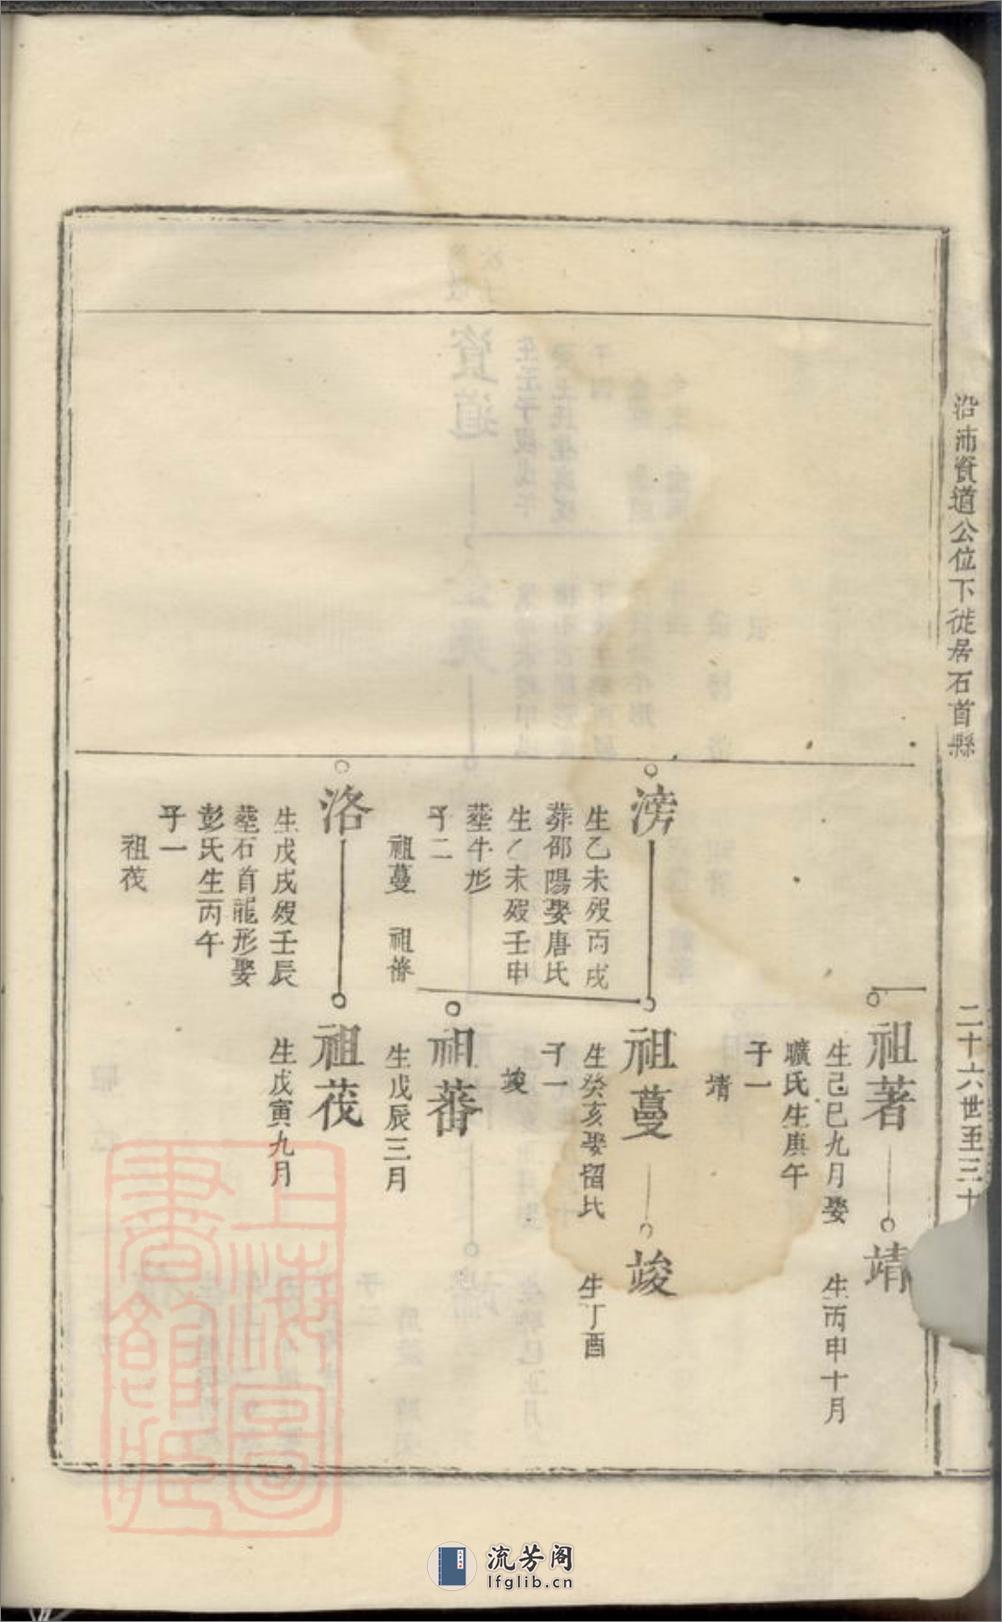 沿沛資道公位下徙居石首縣
二十六世至三十
祖著
生己巳九月娶
曠氏生庚午
子一
靖
靖
生丙申十月
滂
生乙未歿丙戌
葬邵陽娶唐氏
生乙未歿壬申
塟牛形
子二
祖蔓 祖蕃
祖蔓
生癸亥娶留氏
子一
竣
竣
生丁酉
祖蕃
生戊辰三月
洛
生戊戌歿壬辰
塟石首龍形娶
彭氏生丙午
子一
祖茷
祖茷
生戊寅九月
上海圖書館藏
流芳阁
lfglib.cn